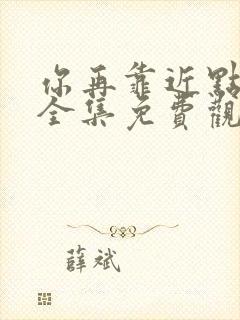 你再靠近點
全集免費觀
薛斌